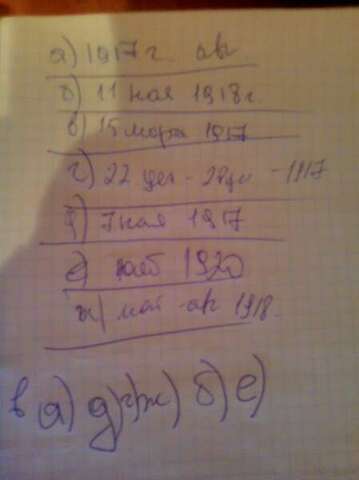 а) 1917 г. ав
б) 11 ноя 1918 г.
в) 15 марта 1917
г) 22 дек - 28 - 1917
д) 7 ноя 1917
е) нояб 1920
ж) май - ав 1918
в а) д) г) ж) б) е)